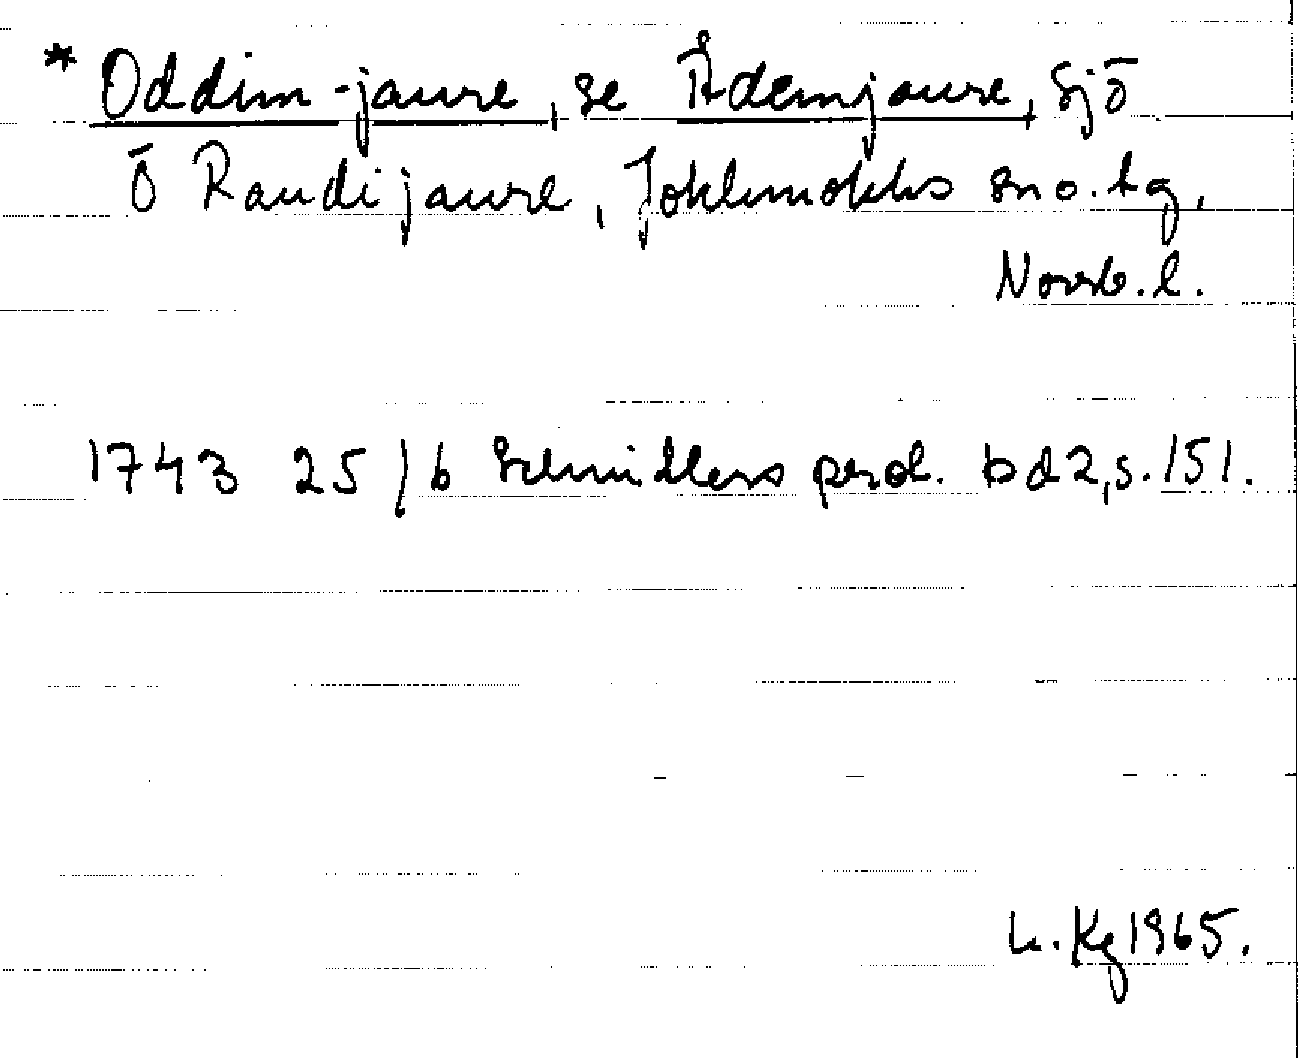 * Oddim-jaure, se Ådemjaure, Sjö
Ö Randijaure, Jokkmokks sn o. tg,
Norrb. l.
1743 25/6 Schmidlers prot. bd 2, s. 151.
L. Kg 1965.